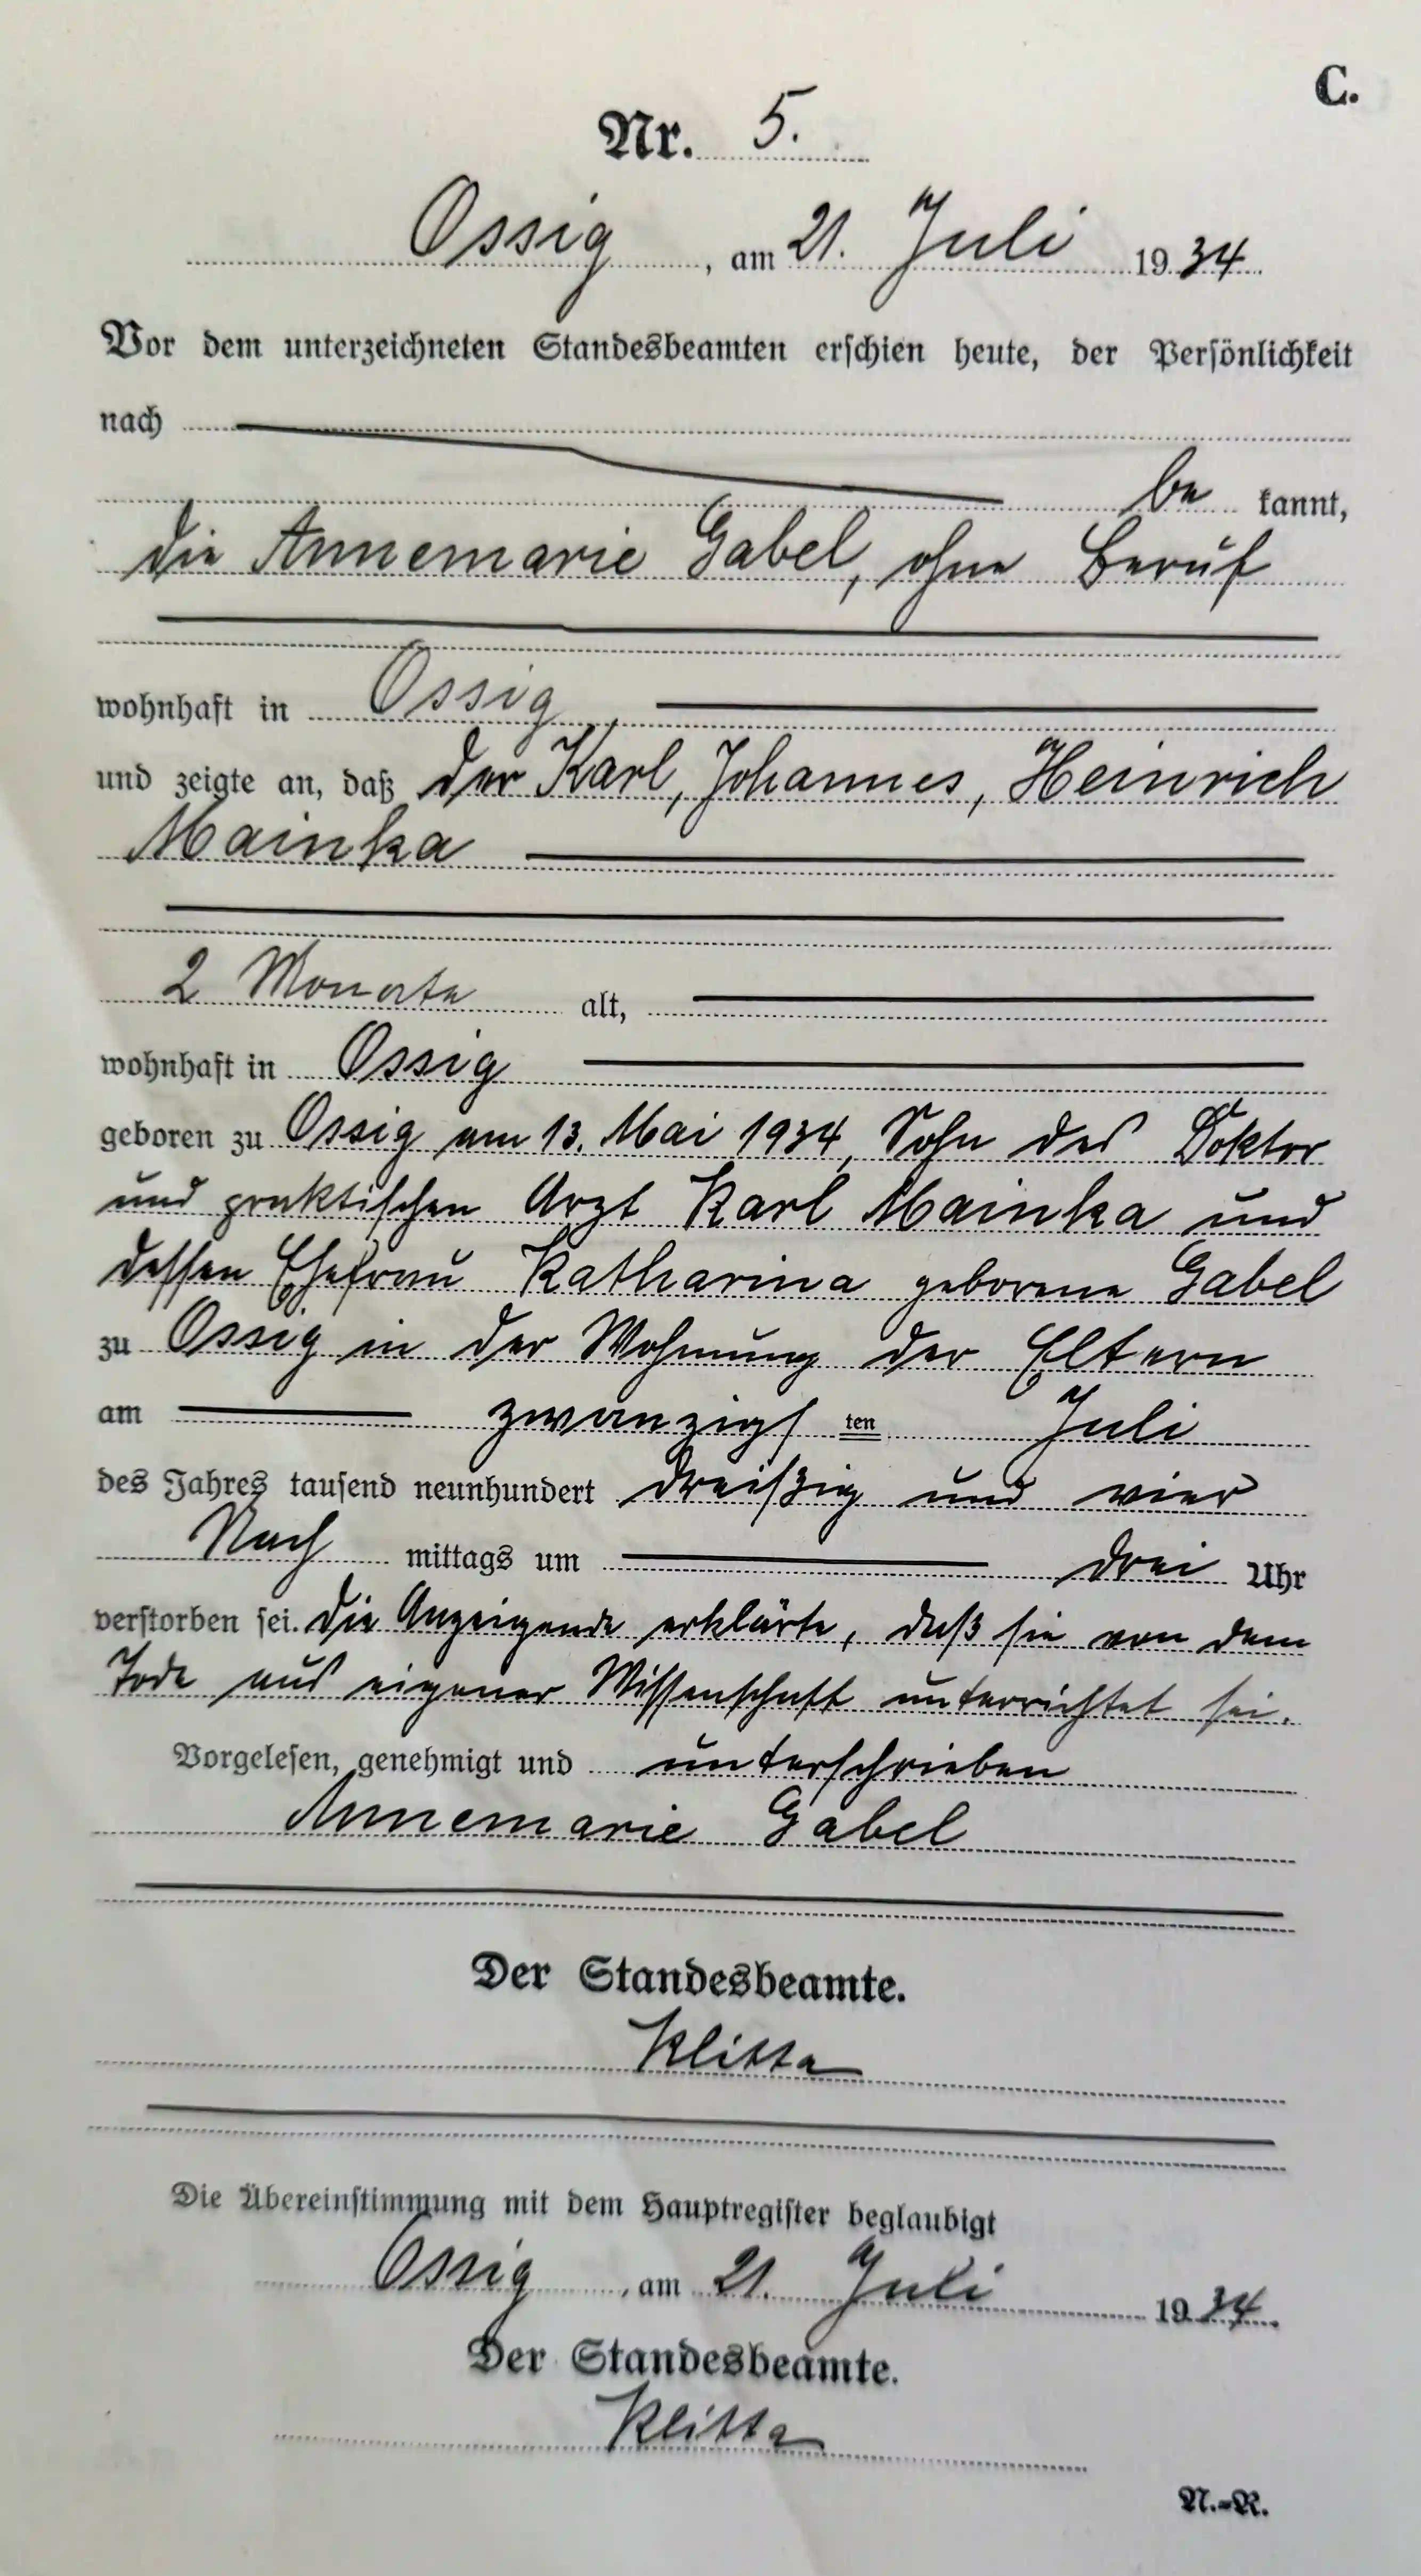 C.
Nr. 5.
Ossig, am 21. Juli 1934.
Vor dem unterzeichneten Standesbeamten erschien heute, der Persönlichkeit
nach
be kannt,
die Annemarie Gabel, ohne Beruf
wohnhaft in Ossig,
und zeigte an, daß der Karl, Johannes, Heinrich
Mainka
2 Monate alt,
wohnhaft in Ossig
geboren zu Ossig am 13. Mai 1934, Sohn des Doktor
und praktischen Arzt Karl Mainka und
dessen Ehefrau Katharina geborene Gabel
zu Ossig in der Wohnung der Eltern
am zwanzigsten Juli
des Jahres tausend neunhundert dreißig und vier
Nach mittags um drei Uhr
verstorben sei. Die Anzeigende erklärte, daß sie von dem
Tode aus eigener Wissenschaft unterrichtet sei.
Vorgelesen, genehmigt und unterschrieben
Annemarie Gabel
Der Standesbeamte.
Die Übereinstimmung mit dem Hauptregister beglaubigt
Ossig, am 21. Juli 1934.
Der Standesbeamte.
N.-R.